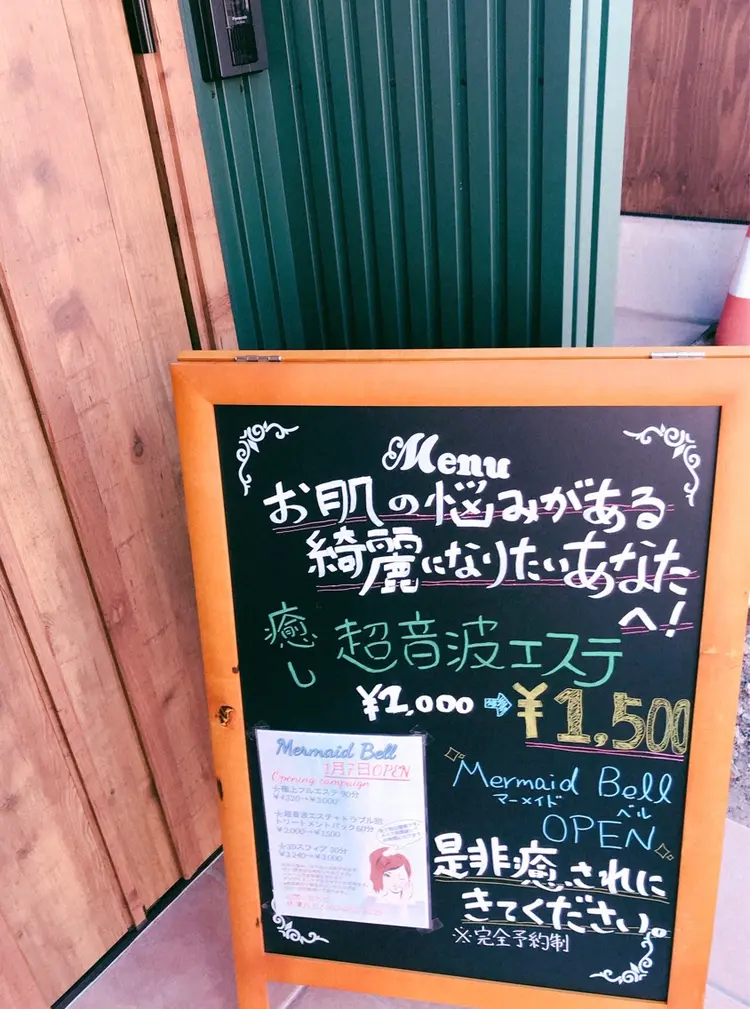 Panasonic
Menu
お肌の悩みがある
綺麗になりたいあなた
へ!
癒し 超音波エステ
¥2,000 ➡ ¥1,500
Mermaid Bell
マーメイド ベル
OPEN
是非癒されに
きてください。
※完全予約制
Mermaid Bell
1月7日OPEN
Opening campaign
☆極上フルエステ90分
☆超音波エステ+トラブル別
トリートメントパック60分
☆3Dスフィア 30分